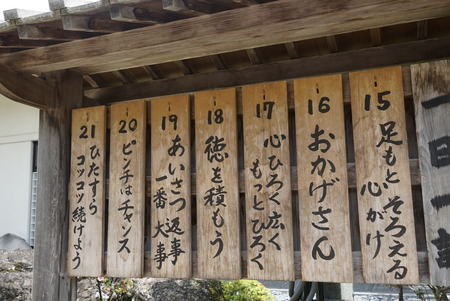 一日一訓
15
足もとそろえる
心がけ
16
おかげさん
17
心ひろく広く
もっとひろく
18
徳を積もう
19
あいさつ返事
一番大事
20
ピンチはチャンス
21
ひたすら
コツコツ続けよう